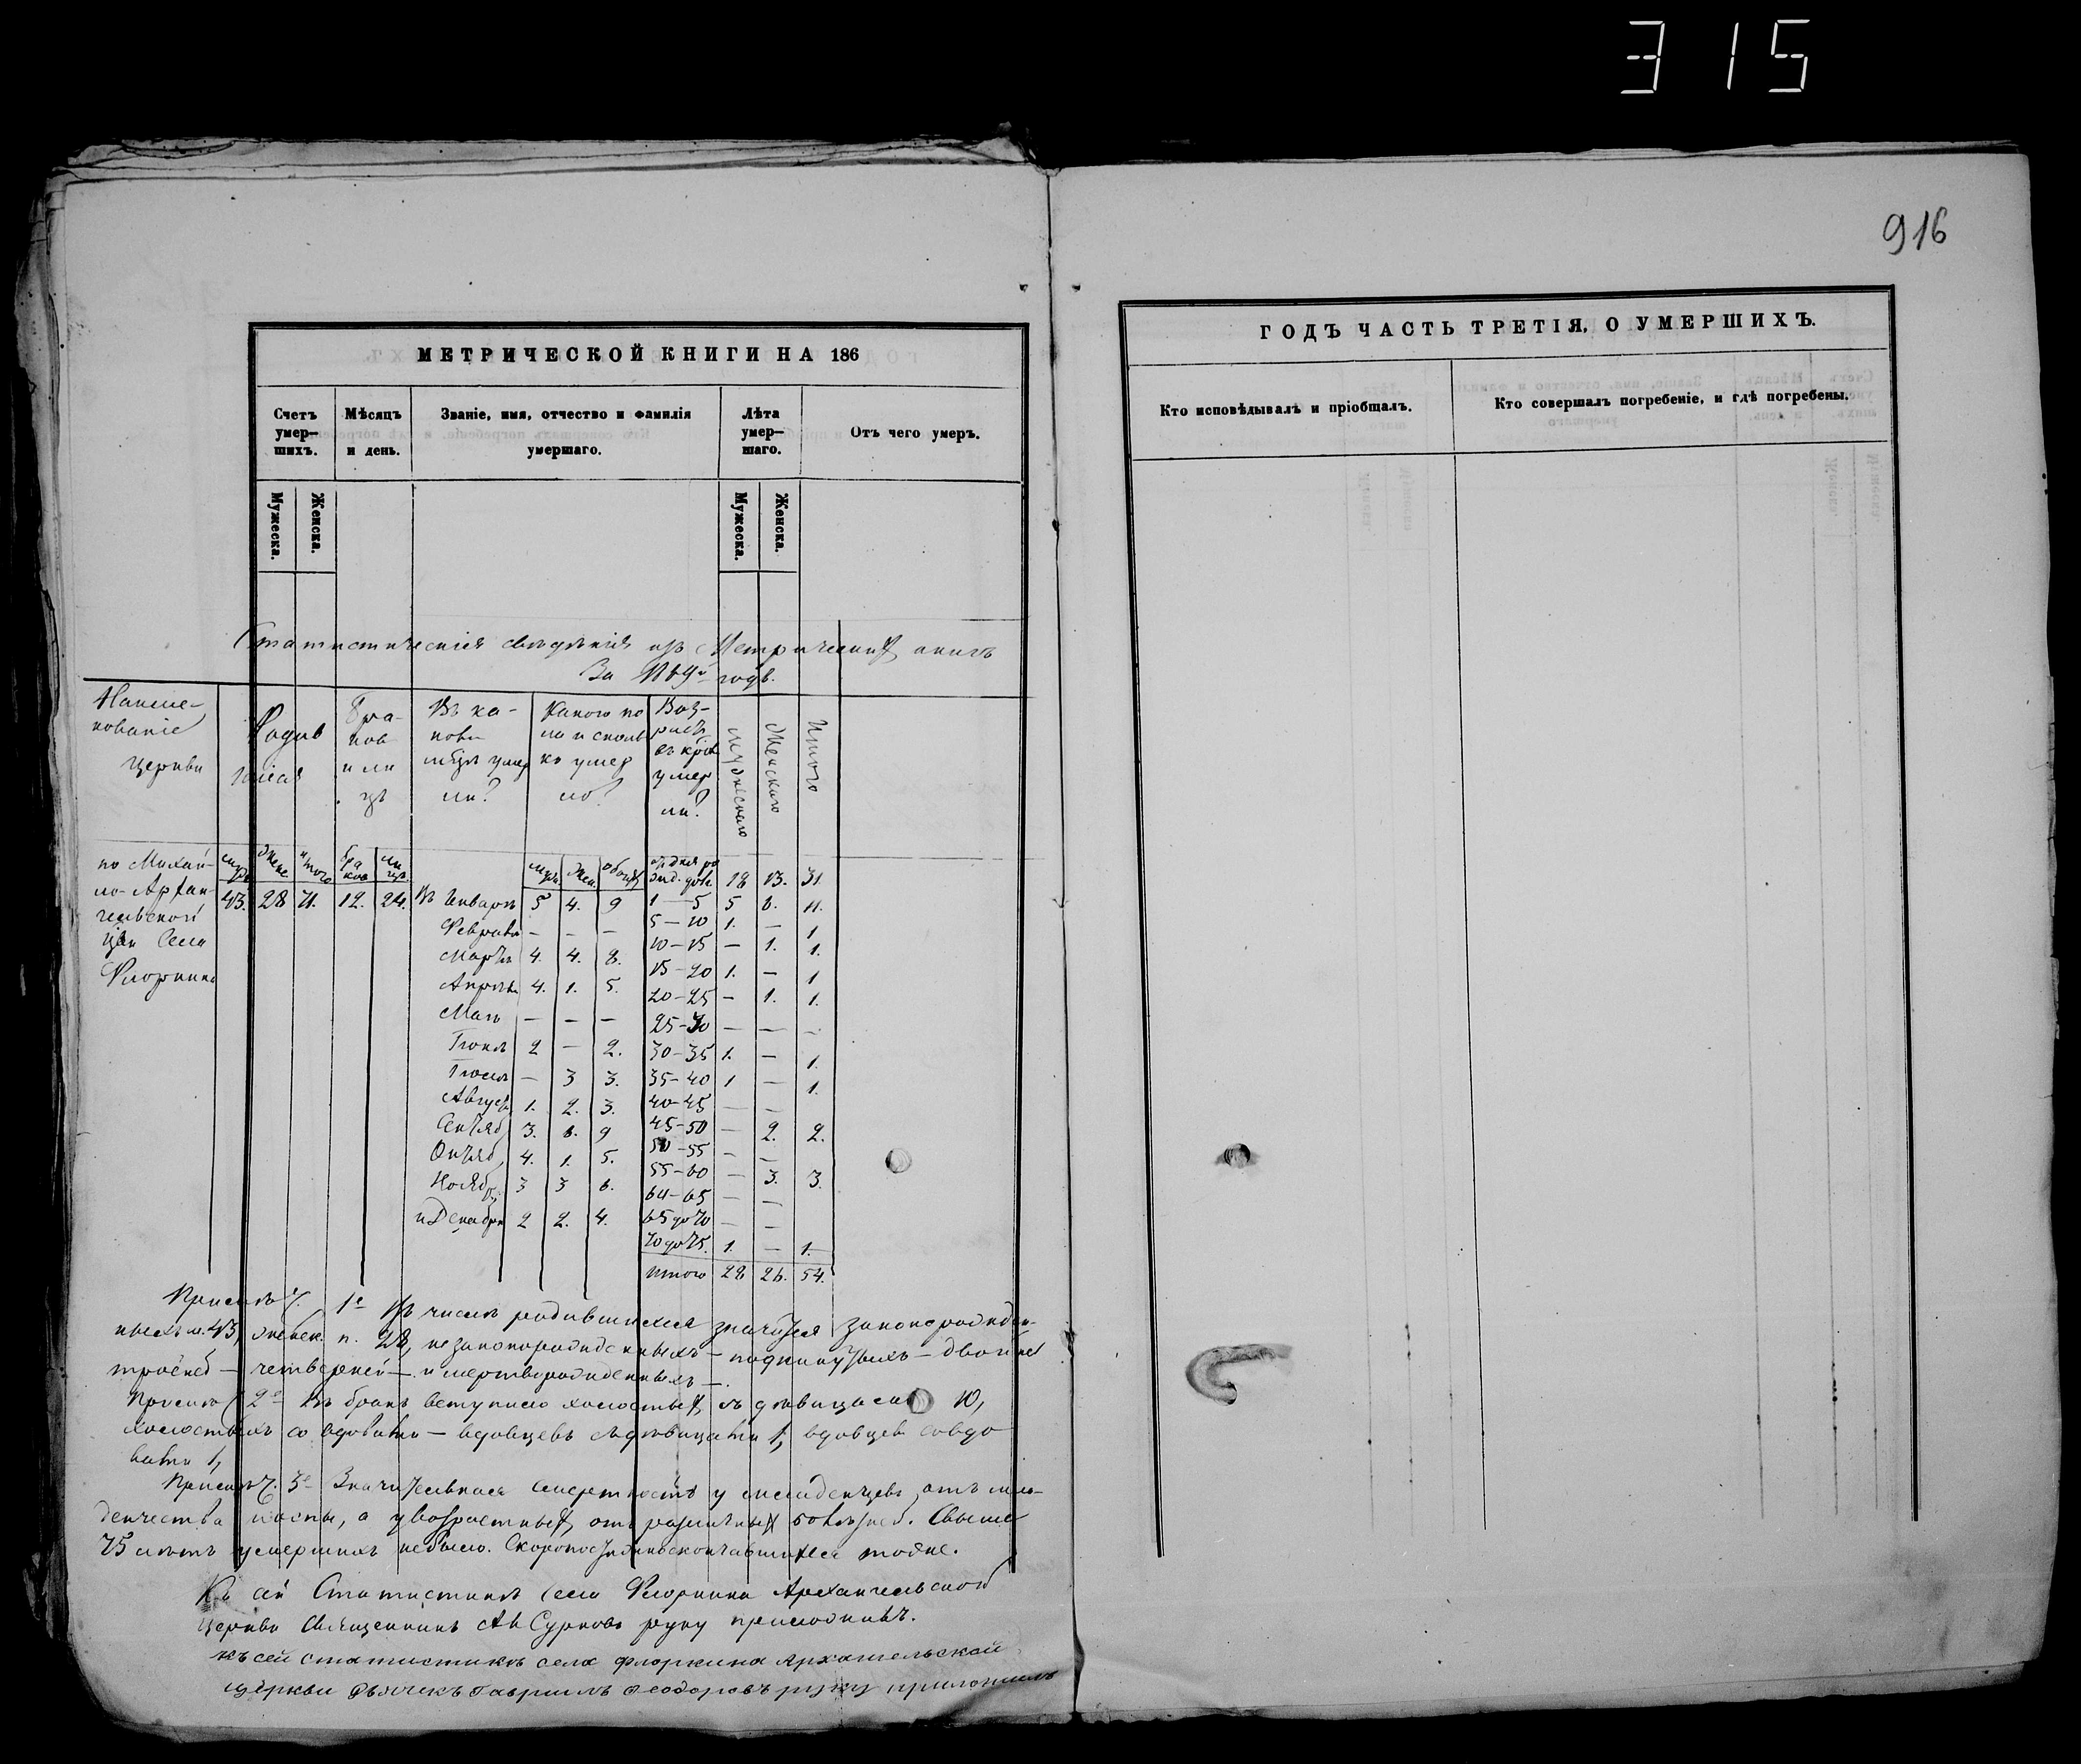 315
916
МЕТРИЧЕСКОЙ КНИГИ НА 186
Счетъ умер–шихъ.
Мѣсяцъ и день.
Званіе, имя, отчество и фамилія умершаго.
Лѣта умер–шаго.
Отъ чего умеръ.
Мужеска.
Женска.
Мужеска.
Женска.
Статистическія свѣдѣнія изъ Метрическихъ книгъ
За 1869й годъ.
Наиме-
нованіе
церкви
Браковъ и лицъ
Какого пола и сколько умерло?
мужескаго
Женскаго
Итого
по Михаи-
ло-Архан-
гельской
цкви Села
Флоркина
43. 28 71. 12. 24.
18 13. 31.
Въ Январѣ 5 4. 9 1—5 5 6. 11.
Февралѣ — — — 5—10 1. — 1
Мартѣ 4. 4. 8. 10—15 — 1. 1.
Апрѣлѣ 4. 1. 5. 15—20 1. — 1
20—25 — 1. 1.
Маѣ — — — 25—30 — — —
Іюнѣ 2 — 2. 30—35 1. — 1.
Іюлѣ — 3 3. 35—40 1 — 1.
Август 1. 2. 3. 40—45 — —
Сентяб 3. 6. 9 45—50 — 2. 2.
Октяб 4. 1. 5. 50—55 — —
55—60 — 3. 3.
Ноябр 3 3 6. 60—65 — —
и Декабрѣ 2 2. 4. 65 до 70 — —
70 до 75. 1. — 1.
Итого 28 26. 54.
Примѣч. 1е Въ числѣ родившихся значутся законорожден-
ныхъ м. 43, женск. п. 28, незаконорожденныхъ — подкинутыхъ — двойней
тройней — четверней — и мертворожденныхъ —.
2е Въ бракъ вступило холостыхъ съ дѣвицами 10,
холостыхъ со вдовами — вдовцевъ съ дѣвицами 1, вдовцев со вдо
вами 1,
Примѣч. 3е Значительная смертность у младенцевъ отъ мла-
денчества и оспы, а у возрастныхъ отъ различныхъ болѣзней. Свыше
75 лѣтъ умершихъ небыло. Скоропостижно скончавшихся тоже.
Къ сей Статистикѣ Села Флоркина Архангельской
Церкви Священникъ Сурковъ руку приложилъ.
къ сей статистикѣ села Флоркина Архангельской
церкви дьячекъ Гавриилъ Феодоровъ руку приложилъ
ГОДЪ ЧАСТЬ ТРЕТІЯ, О УМЕРШИХЪ.
Кто исповѣдывалъ и пріобщалъ.
Кто совершалъ погребеніе, и гдѣ погребены.